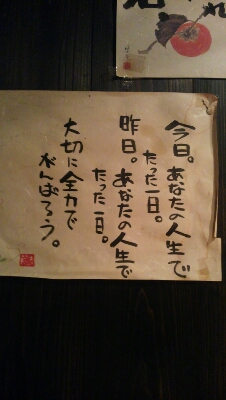 今日。あなたの人生で
たった一日。
昨日。あなたの人生で
たった一日。
大切に全力で
がんばろう。